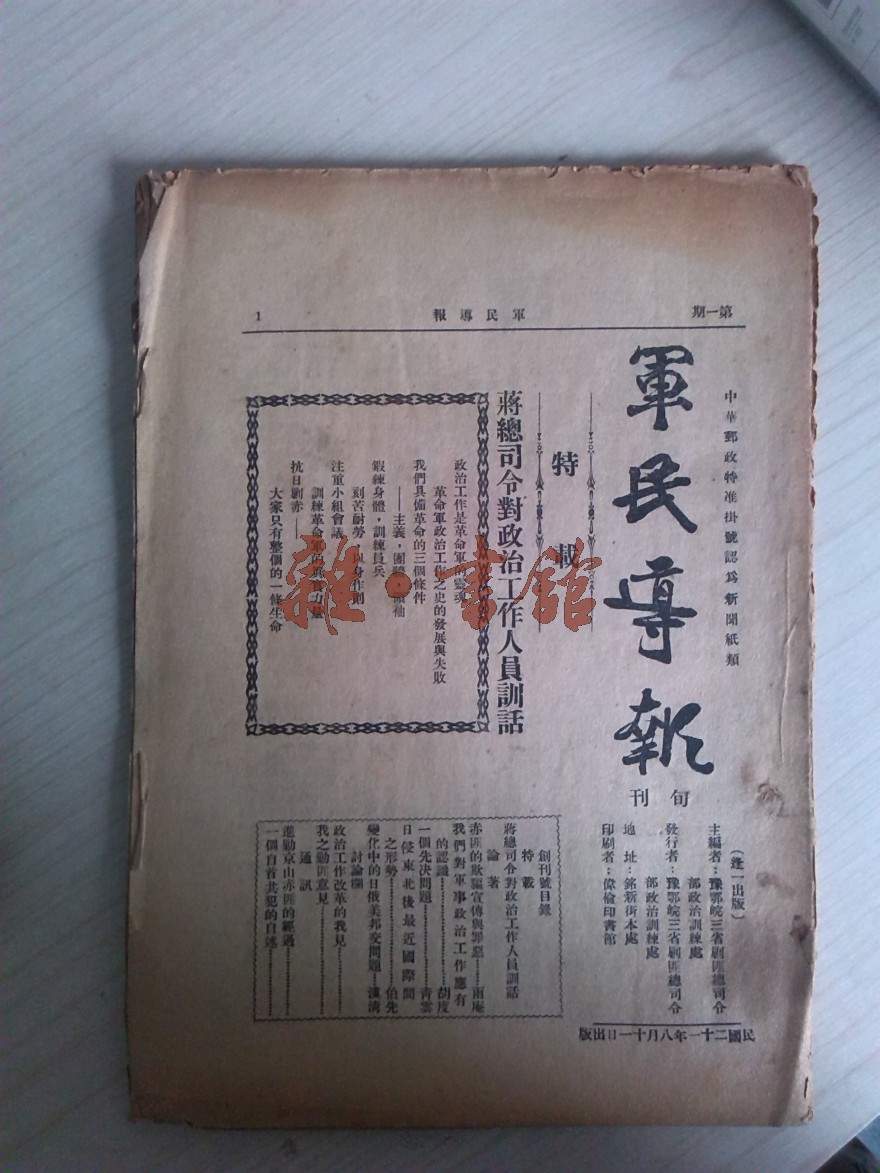 第一期
軍民導報
1
中華郵政特准掛號認為新聞紙類
軍民導報
旬刊
（逢一出版）
主編者：豫鄂皖三省剿匪總司令
部政治訓練處
發行者：豫鄂皖三省剿匪總司令
部政治訓練處
地址：銘新街本處
印刷者：偉倫印書館
民國二十一年八月十一日出版
特載
蔣總司令對政治工作人員訓話
政治工作是革命軍的靈魂
革命軍政治工作之史的發展與失敗
我們具備革命的三個條件
——主義，團體，領袖
鍛練身體，訓練員兵
刻苦耐勞，以身作則
注重小組會議
訓練革命軍的真實力量
抗日剿赤——
大家只有整個的一條生命
創刊號目錄
特載
蔣總司令對政治工作人員訓話
論著
赤匪的欺騙宣傳與罪惡……雨庵
我們對軍事政治工作應有
的認識……胡度
一個先決問題……青雲
日侵東北後最近國際間
之形勢……伯先
變化中的日俄美邦交問題……漢清
討論欄
政治工作改革的我見……
我之勦匪意見……
通訊
進勦京山赤匪的經過……
一個自首共犯的自述……
雜·書館